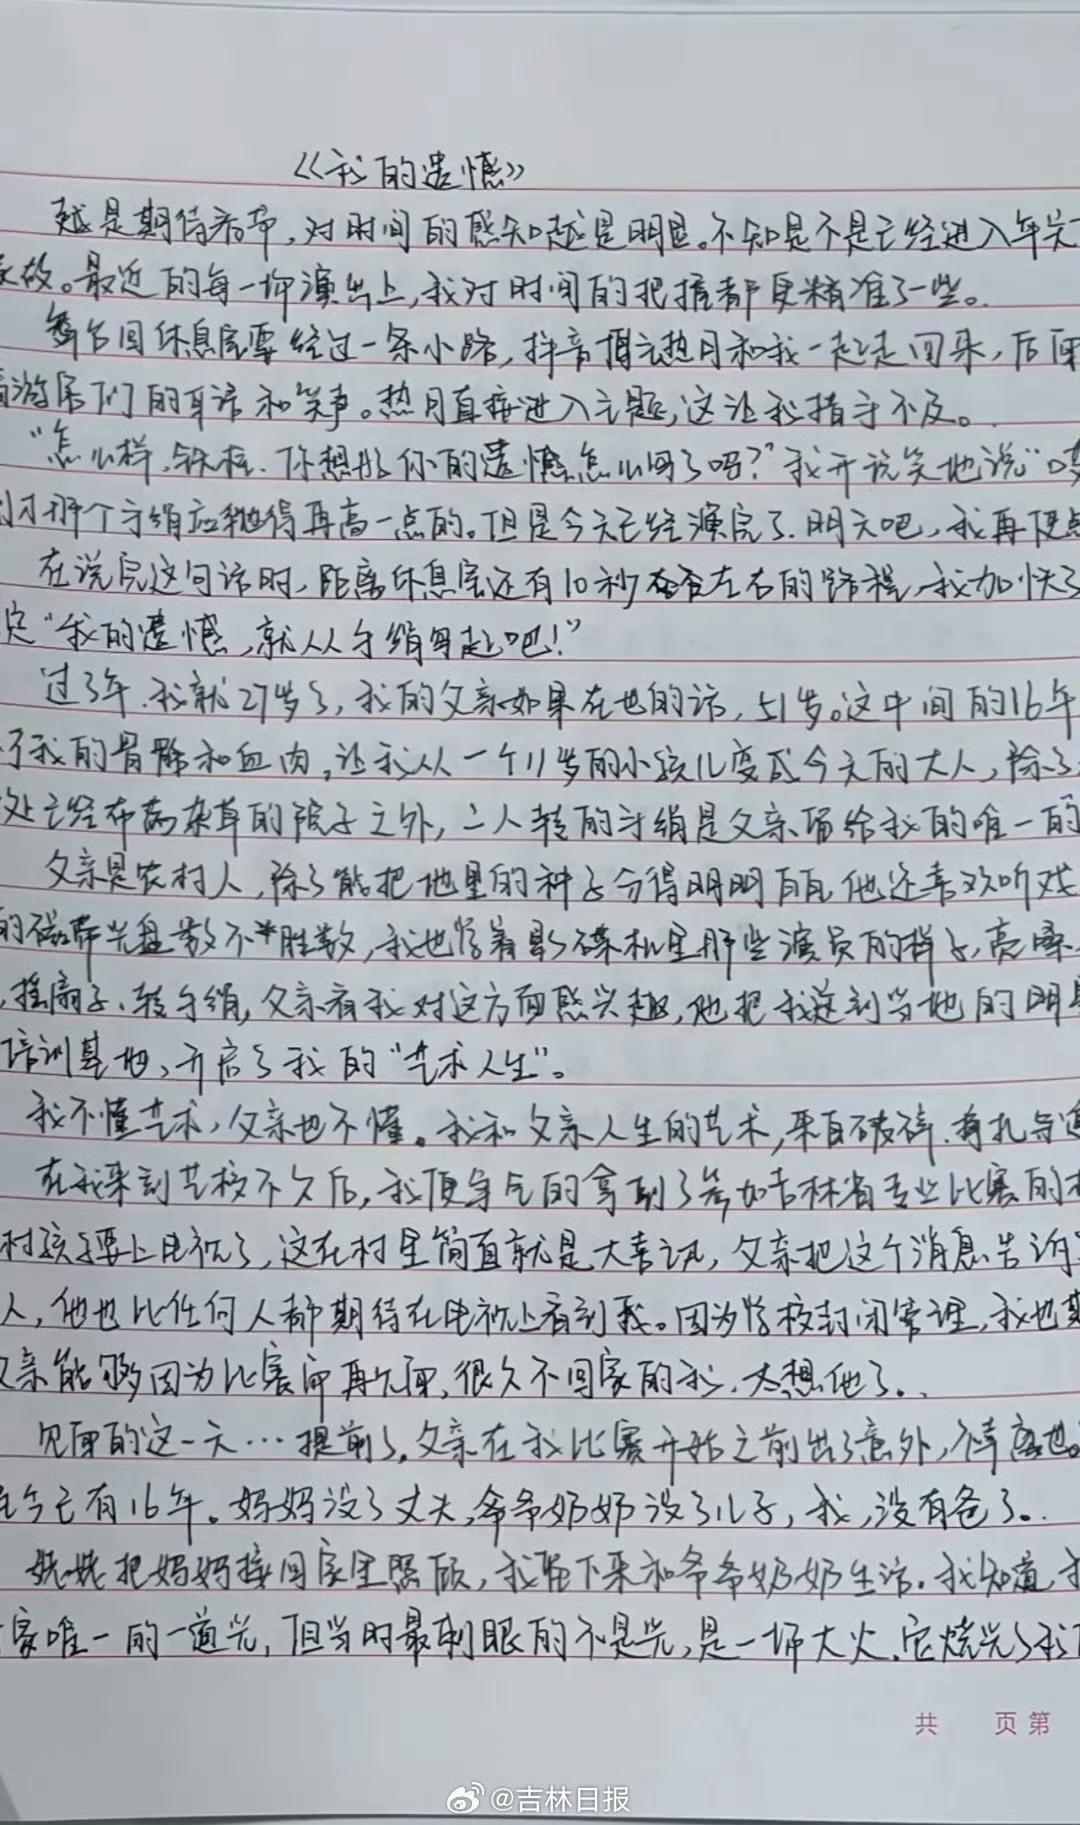 《我的遗憾》
越是期待春节，对时间的感知越是明显。不知是不是已经进入年关
故。最近的每一场演出上，我对时间的把握都更精准了一些。
舞台回休息室要经过一条小路，抖音博主热月和我一起走回来，后面
游居们的耳语和笑声。热月直接进入主题，这让我措手不及。
“怎么样，铁柱，你想好你的遗憾怎么写了吗？”我开玩笑地说“
那个手绢应
得再高一点的。但是今天已经演完了，明天吧，我再使点
在说完这句话时，距离休息室还有10秒左右的路程，我加快了
定“我的遗憾，就从手绢写起吧！”
过了年，我就27岁了，我的父亲如果在世的话，51岁。这中间的16年
了我的骨骼和血肉，让我从一个11岁的小孩儿变成今天的大人，除了
处已经布满杂草的院子之外，二人转的手绢是父亲留给我的唯一的
父亲是农村人，除了能把地里的种子分得明明白白，他还喜欢听戏
的磁带光盘数不胜数，我也学着影碟机里那些演员的样子，亮嗓
，摇扇子、转手绢，父亲看我对这方面感兴趣，他把我送到当地的明星
培训基地，开启了我的“艺术人生”。
我不懂艺术，父亲也不懂。我和父亲人生的艺术，来自破碎、挣扎与
在我来到艺校不久后，我便争气的拿到了参加吉林省专业比赛的
村孩子要上电视了，这在村里简直就是大喜讯，父亲把这个消息告诉
人，他也比任何人都期待在电视上看到我。因为学校封闭管理，我也期
父亲能够因为比赛而再见面，很久不回家的我，太想他了。.
见面的这一天…提前了，父亲在我比赛开始之前出了意外，不幸离世。
至今已有16年。妈妈没了丈夫，爷爷奶奶没了儿子，我，没有爸了。.
姥姥把妈妈接回家里照顾，我留下来和爷爷奶奶生活。我知道，我
家唯一的一道光，但当时最刺眼的不是光，是一场大火，它烧光了我
共 页 第
@吉林日报